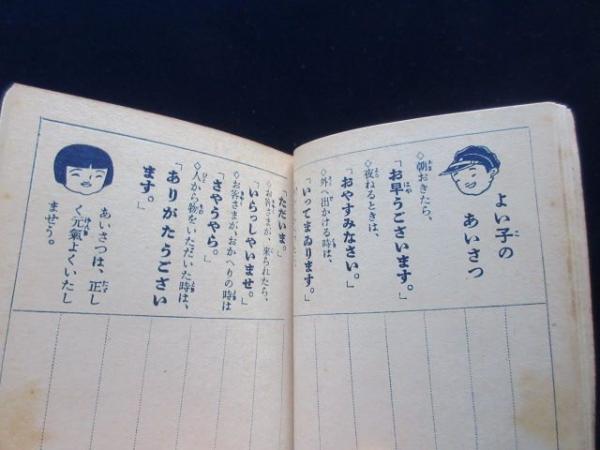 よい子の
あいさつ
◇朝おきたら、
「お早うございます。」
◇夜ねるときは、
「おやすみなさい。」
◇外へ出かける時は、
「いってまゐります。」
「ただいま。」
◇お客さまが、来られたら、
「いらっしゃいませ。」
◇お客さまが、おかへりの時は
「さやうなら。」
◇人から物をいただいた時は、
「ありがたうござい
ます。」
あいさつは、正し
く元氣よくいたし
ませう。